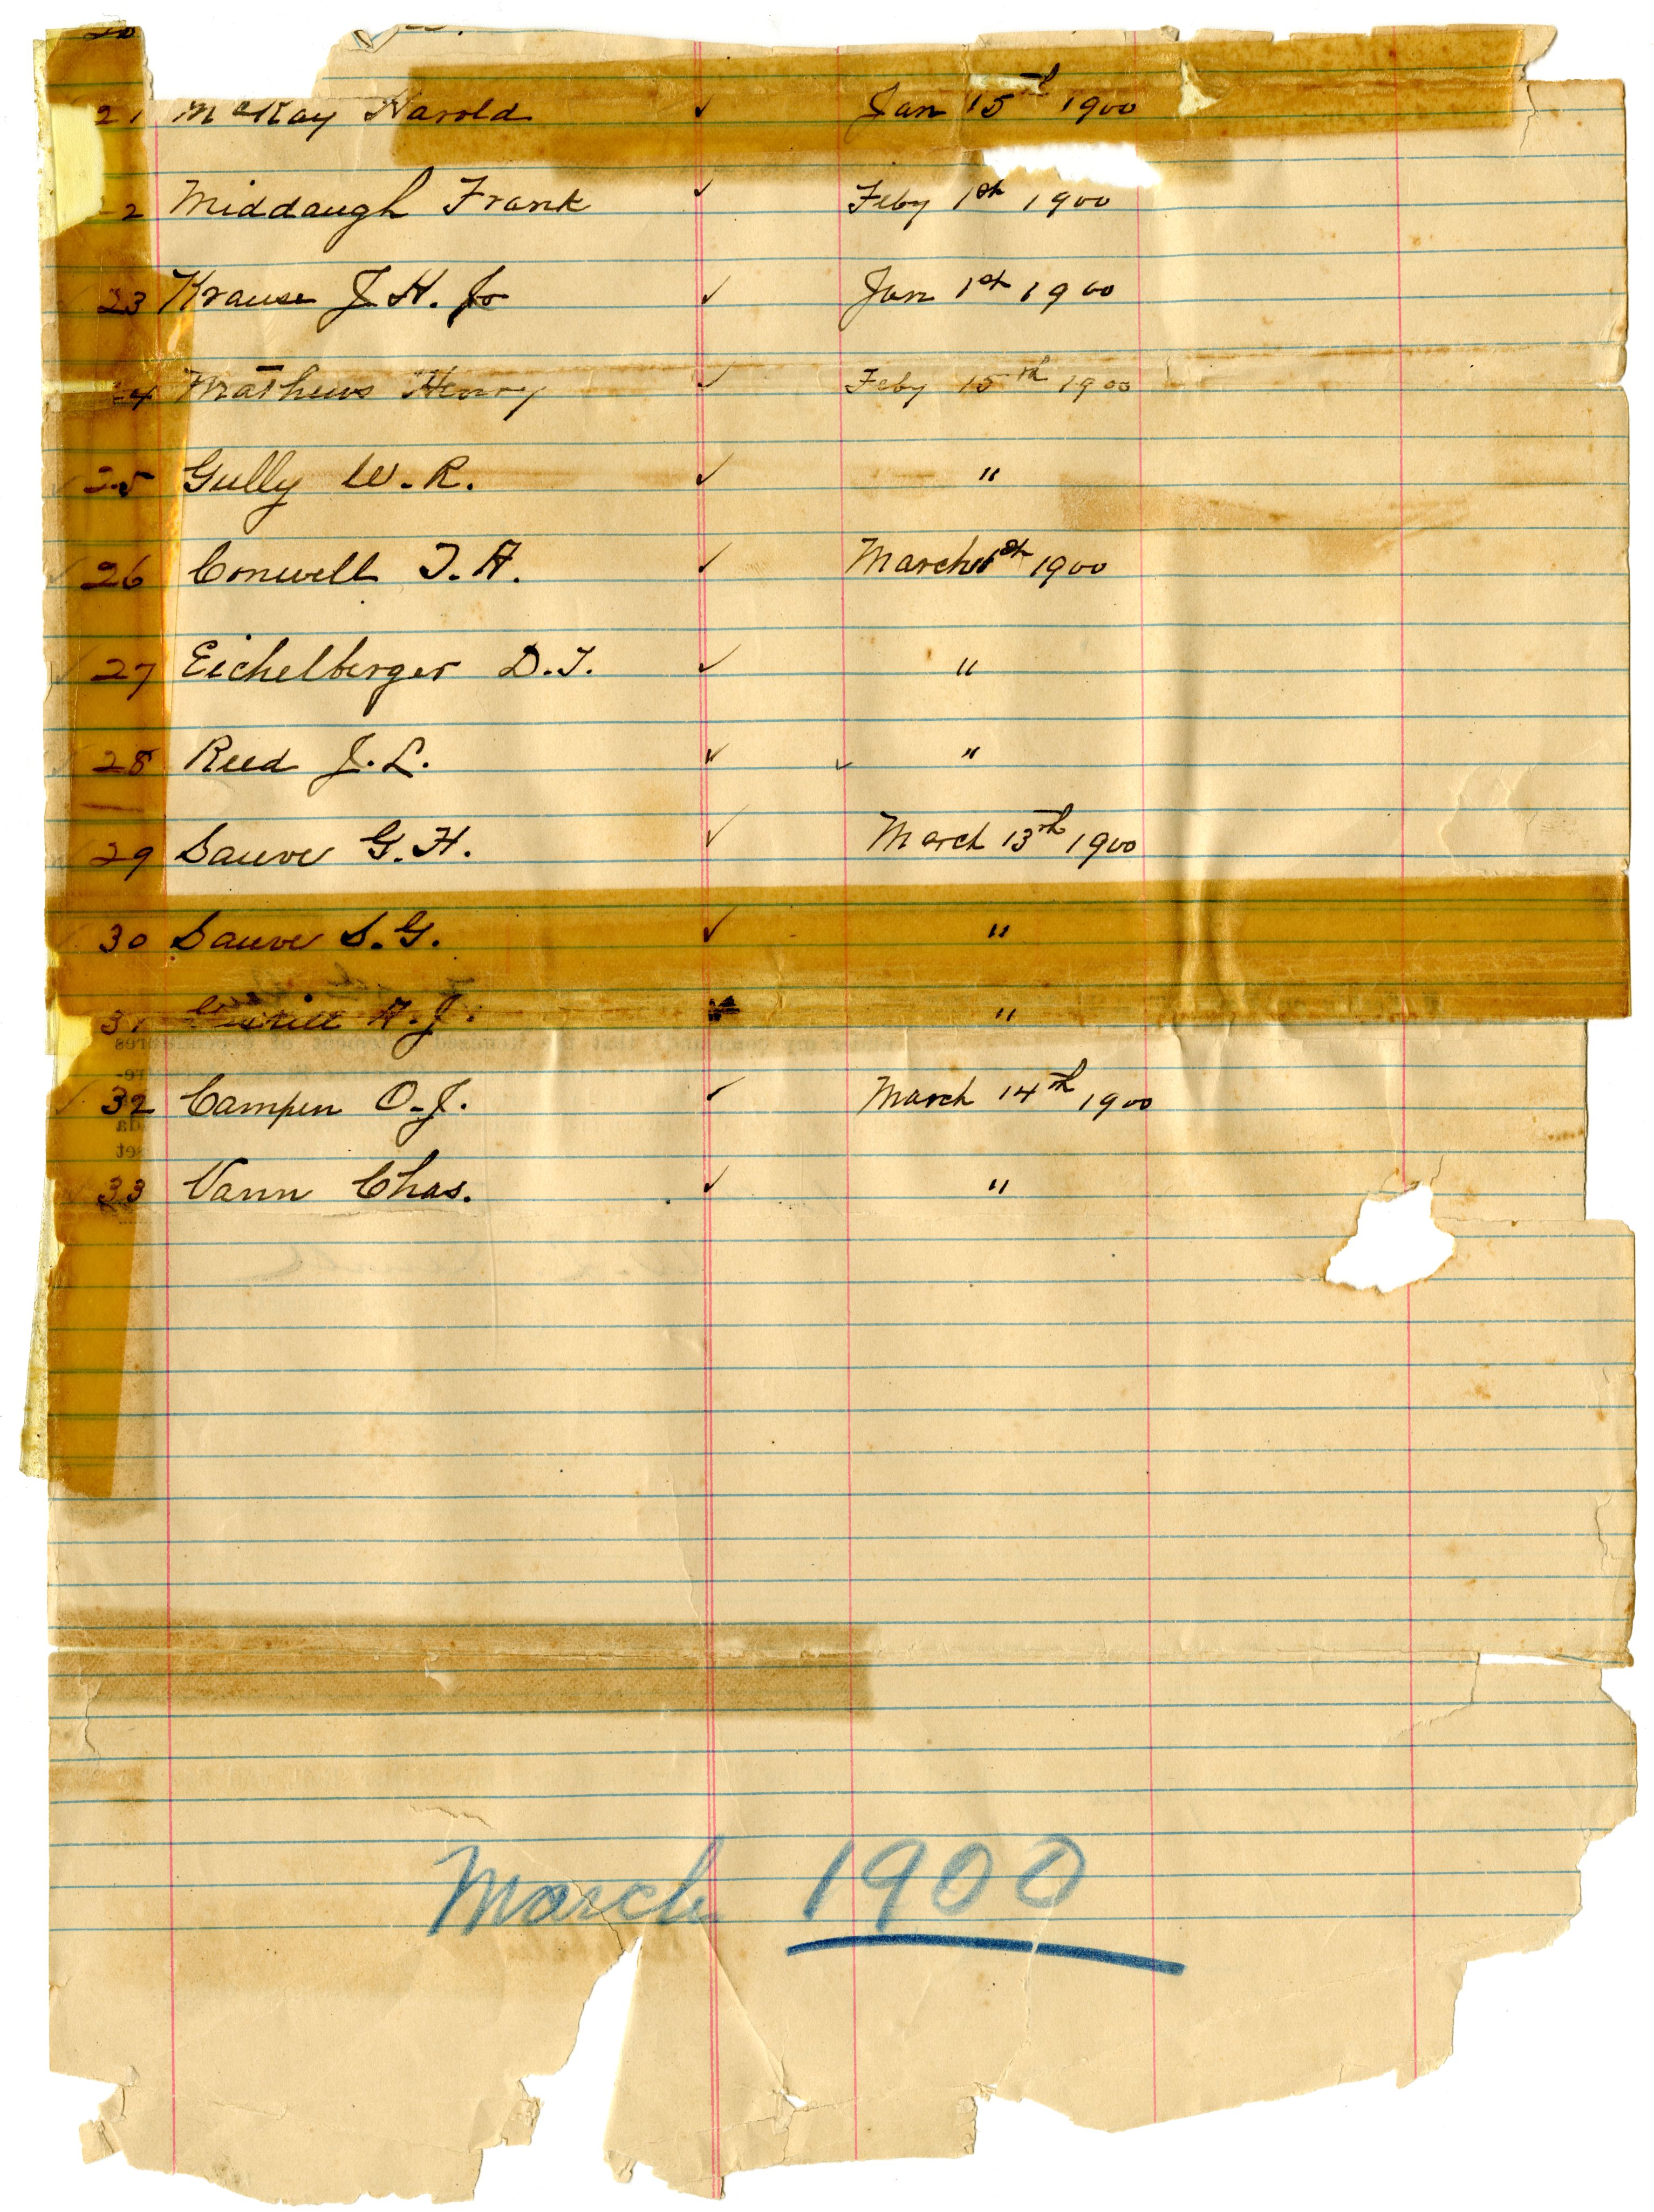 20
21 McKay Harold ✓ Jan 15th 1900
22 Middaugh Frank ✓ Feby 1st 1900
23 Krause J H. Jr ✓ Jan 1st 1900
24 Mathews Henry ✓ Feby 15th 1900
25 Gully W. R. ✓ "
26 Conwell T. A. ✓ March 1st 1900
27 Eichelberger D. T. ✓ "
28 Reed J. L. ✓ ✓ "
29 Sauve G. H. ✓ March 13th 1900
30 Sauve S. G. ✓ "
31 A. J. "
32 Campen O. J. ✓ March 14th 1900
33 Vann Chas. ✓ "
March 1900